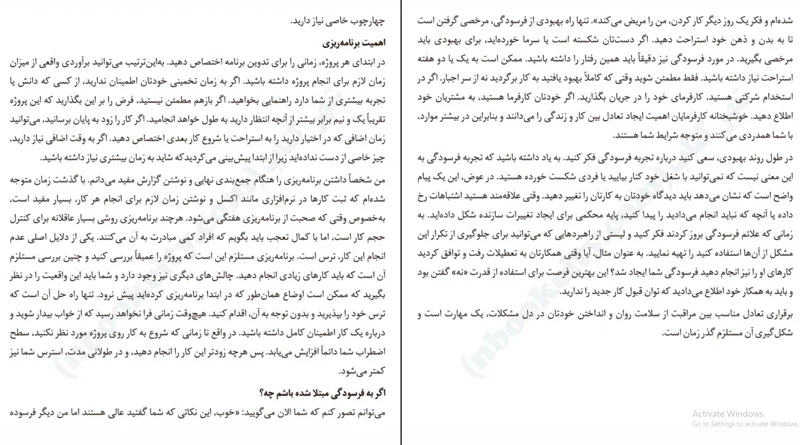 چهارچوب خاصی نیاز دارید.
اهمیت برنامه‌ریزی
در ابتدای هر پروژه، زمانی را برای تدوین برنامه اختصاص دهید. به‌این‌ترتیب می‌توانید برآوردی واقعی از میزان
زمان لازم برای انجام پروژه داشته باشید. اگر به زمان تخمینی خودتان اطمینان ندارید، از کسی که دانش یا
تجربه بیشتری از شما دارد راهنمایی بخواهید. اگر بازهم مطمئن نیستید، فرض را بر این بگذارید که این پروژه
تقریباً یک و نیم برابر بیشتر از آنچه انتظار دارید به طول خواهد انجامید. اگر کار را زود به پایان برسانید، می‌توانید
زمان اضافی که در اختیار دارید را به استراحت یا شروع کار بعدی اختصاص دهید. اگر به وقت اضافی نیاز دارید،
چیز خاصی از دست نداده‌اید زیرا از ابتدا پیش‌بینی می‌کردید که شاید به زمان بیشتری نیاز داشته باشید.
من شخصاً داشتن برنامه‌ریزی را هنگام جمع‌بندی نهایی و نوشتن گزارش مفید می‌دانم. با گذشت زمان متوجه
شده‌ام که ثبت کارها در نرم‌افزاری مانند اکسل و نوشتن زمان لازم برای انجام هر کار، بسیار مفید است،
به‌خصوص وقتی که صحبت از برنامه‌ریزی هفتگی می‌شود. هرچند برنامه‌ریزی روشی بسیار عاقلانه برای کنترل
حجم کار است، اما با کمال تعجب باید بگویم که افراد کمی مبادرت به آن می‌کنند. یکی از دلایل اصلی عدم
انجام این کار، ترس است. برنامه‌ریزی مستلزم این است که پروژه را عمیقاً بررسی کنید و چنین بررسی مستلزم
آن است که باید کارهای زیادی انجام دهید. چالش‌های دیگری نیز وجود دارد و شما باید این واقعیت را در نظر
بگیرید که ممکن است اوضاع همان‌طور که در ابتدا برنامه‌ریزی کرده‌اید پیش نرود. تنها راه حل آن است که
ترس خود را بپذیرید و بدون توجه به آن، اقدام کنید. هیچ‌وقت زمانی فرا نخواهد رسید که از خواب بیدار شوید و
درباره یک کار اطمینان کامل داشته باشید. در واقع تا زمانی که شروع به کار روی پروژه مورد نظر نکنید، سطح
اضطراب شما دائماً افزایش می‌یابد. پس هرچه زودتر این کار را انجام دهید، و در طولانی مدت، استرس شما نیز
کمتر می‌شود.
اگر به فرسودگی مبتلا شده باشم چه؟
می‌توانم تصور کنم که شما الان می‌گویید: «خوب، این نکاتی که شما گفتید عالی هستند اما من دیگر فرسوده
شده‌ام و فکر یک روز دیگر کار کردن، من را مریض می‌کند». تنها راه بهبودی از فرسودگی، مرخصی گرفتن است
تا به بدن و ذهن خود استراحت دهید. اگر دست‌تان شکسته است یا سرما خورده‌اید، برای بهبودی باید
مرخصی بگیرید. در مورد فرسودگی نیز دقیقاً باید همین رفتار را داشته باشید. ممکن است به یک یا دو هفته
استراحت نیاز داشته باشید. فقط مطمئن شوید وقتی که کاملاً بهبود یافتید به کار برگردید نه از سر اجبار. اگر در
استخدام شرکتی هستید، کارفرمای خود را در جریان بگذارید. اگر خودتان کارفرما هستید، به مشتریان خود
اطلاع دهید. خوشبختانه کارفرمایان اهمیت ایجاد تعادل بین کار و زندگی را می‌دانند و بنابراین در بیشتر موارد،
با شما همدردی می‌کنند و متوجه شرایط شما هستند.
در طول روند بهبودی، سعی کنید درباره تجربه فرسودگی فکر کنید. به یاد داشته باشید که تجربه فرسودگی به
این معنی نیست که نمی‌توانید با شغل خود کنار بیایید یا فردی شکست خورده هستید. در عوض، این یک پیام
واضح است که نشان می‌دهد باید دیدگاه خودتان به کارتان را تغییر دهید. وقتی علاقه‌مند هستید اشتباهات رخ
داده یا آنچه که نباید انجام می‌دادید را پیدا کنید، پایه محکمی برای ایجاد تغییرات سازنده شکل داده‌اید. به
زمانی که علائم فرسودگی بروز کردند فکر کنید و لیستی از راهبردهایی که می‌توانید برای جلوگیری از تکرار این
مشکل از آن‌ها استفاده کنید را تهیه نمایید. به عنوان مثال، آیا وقتی همکارتان به تعطیلات رفت و توافق کردید
کارهای او را نیز انجام دهید فرسودگی شما ایجاد شد؟ این بهترین فرصت برای استفاده از قدرت «نه» گفتن بود
و باید به همکار خود اطلاع می‌دادید که توان قبول کار جدید را ندارید.
برقراری تعادل مناسب بین مراقبت از سلامت روان و انداختن خودتان در دل مشکلات، یک مهارت است و
شکل‌گیری آن مستلزم گذر زمان است.
Activate Windows
Go to Settings to activate Windows.